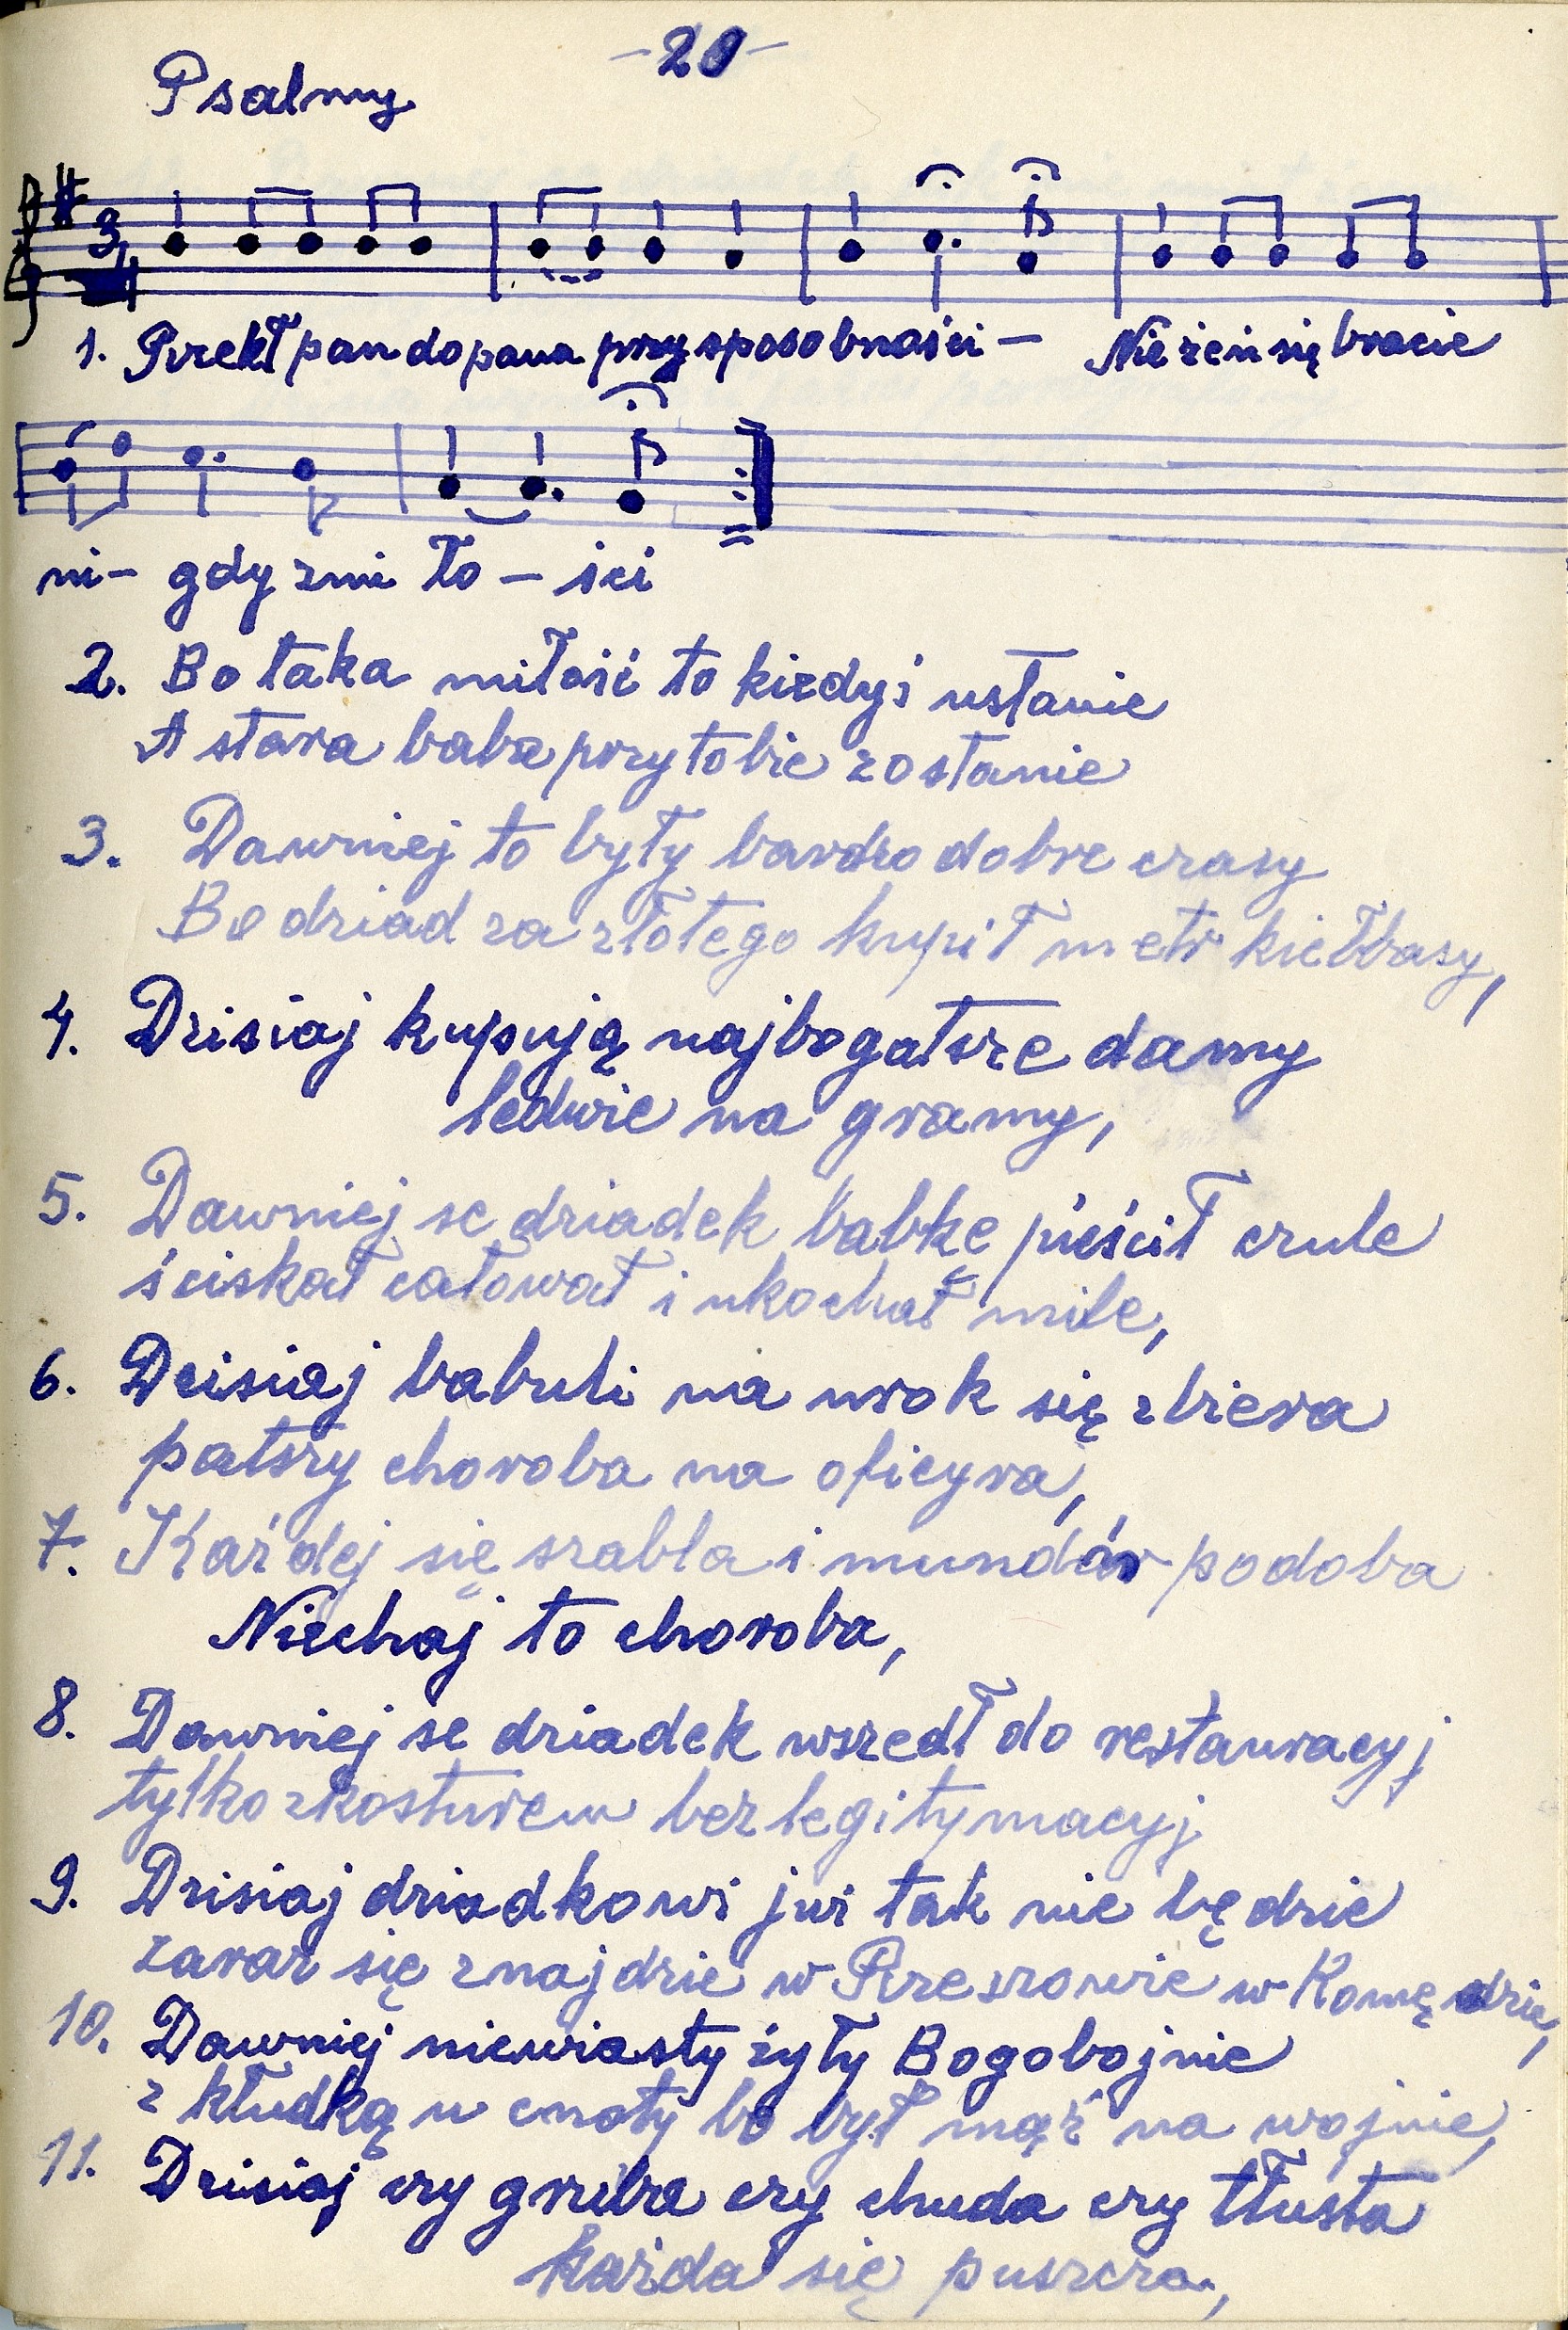 -20-
Psalmy
3/4
1. Rzekł pan do pana przy sposobności - Nie żeń się bracie
ni- gdy z mi ło - ści
2. Bo taka miłość to kiedyś ustanie
A stara baba przy tobie zostanie
3. Dawniej to były bardzo dobre czasy
Bo dziad za złotego kupił metr kiełbasy,
4. Dzisiaj kupują najbogatsze damy
ledwie na gramy,
5. Dawniej se dziadek babkę pieścił czule
ściskał całował i ukochał mile,
6. Dzisiaj babuli na urok się zbiera
patrzy choroba na oficyra,
7. Każdej się szabla i mundór podoba
Niechaj to choroba,
8. Dawniej se dziadek wszedł do restauracyj
tylko z kosturem bez legitymacyj
9. Dzisiaj dziadkowi już tak nie będzie
zaraz się znajdzie w Rzeszowie w Komędzie,
10. Dawniej niewiasty żyły Bogobojnie
z kłudką u cnoty bo był mąż na wojnie,
11. Dzisiaj czy gruba czy chuda czy tłusta
każda się puszcza,